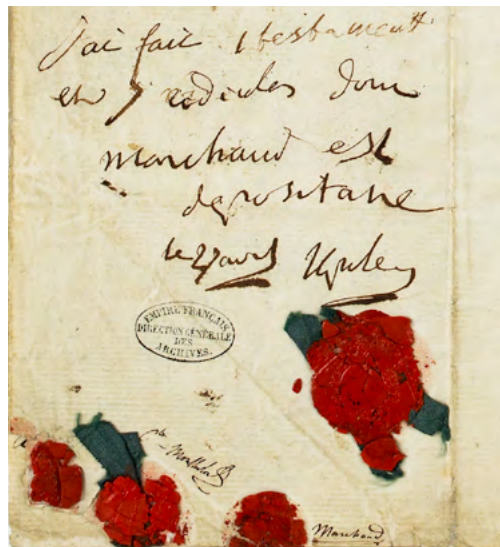 j'ai fait 1 testament
et 7 codiciles dont
marchand est
depositaire
le 27 avril Npole
EMPIRE FRANÇAIS
DIRECTION GÉNÉRALE
DES
ARCHIVES.
Montholon
Marchand